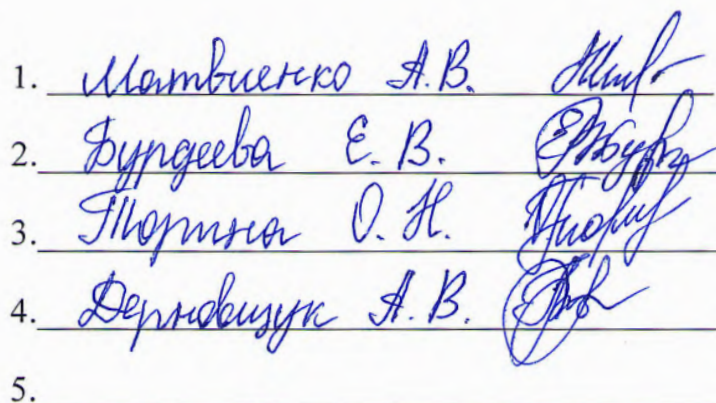 1. Матвиенко А.В.
2. Бурдеева Е.В.
3. Тюрина О.Н.
4. Дерновщук А.В.
5.